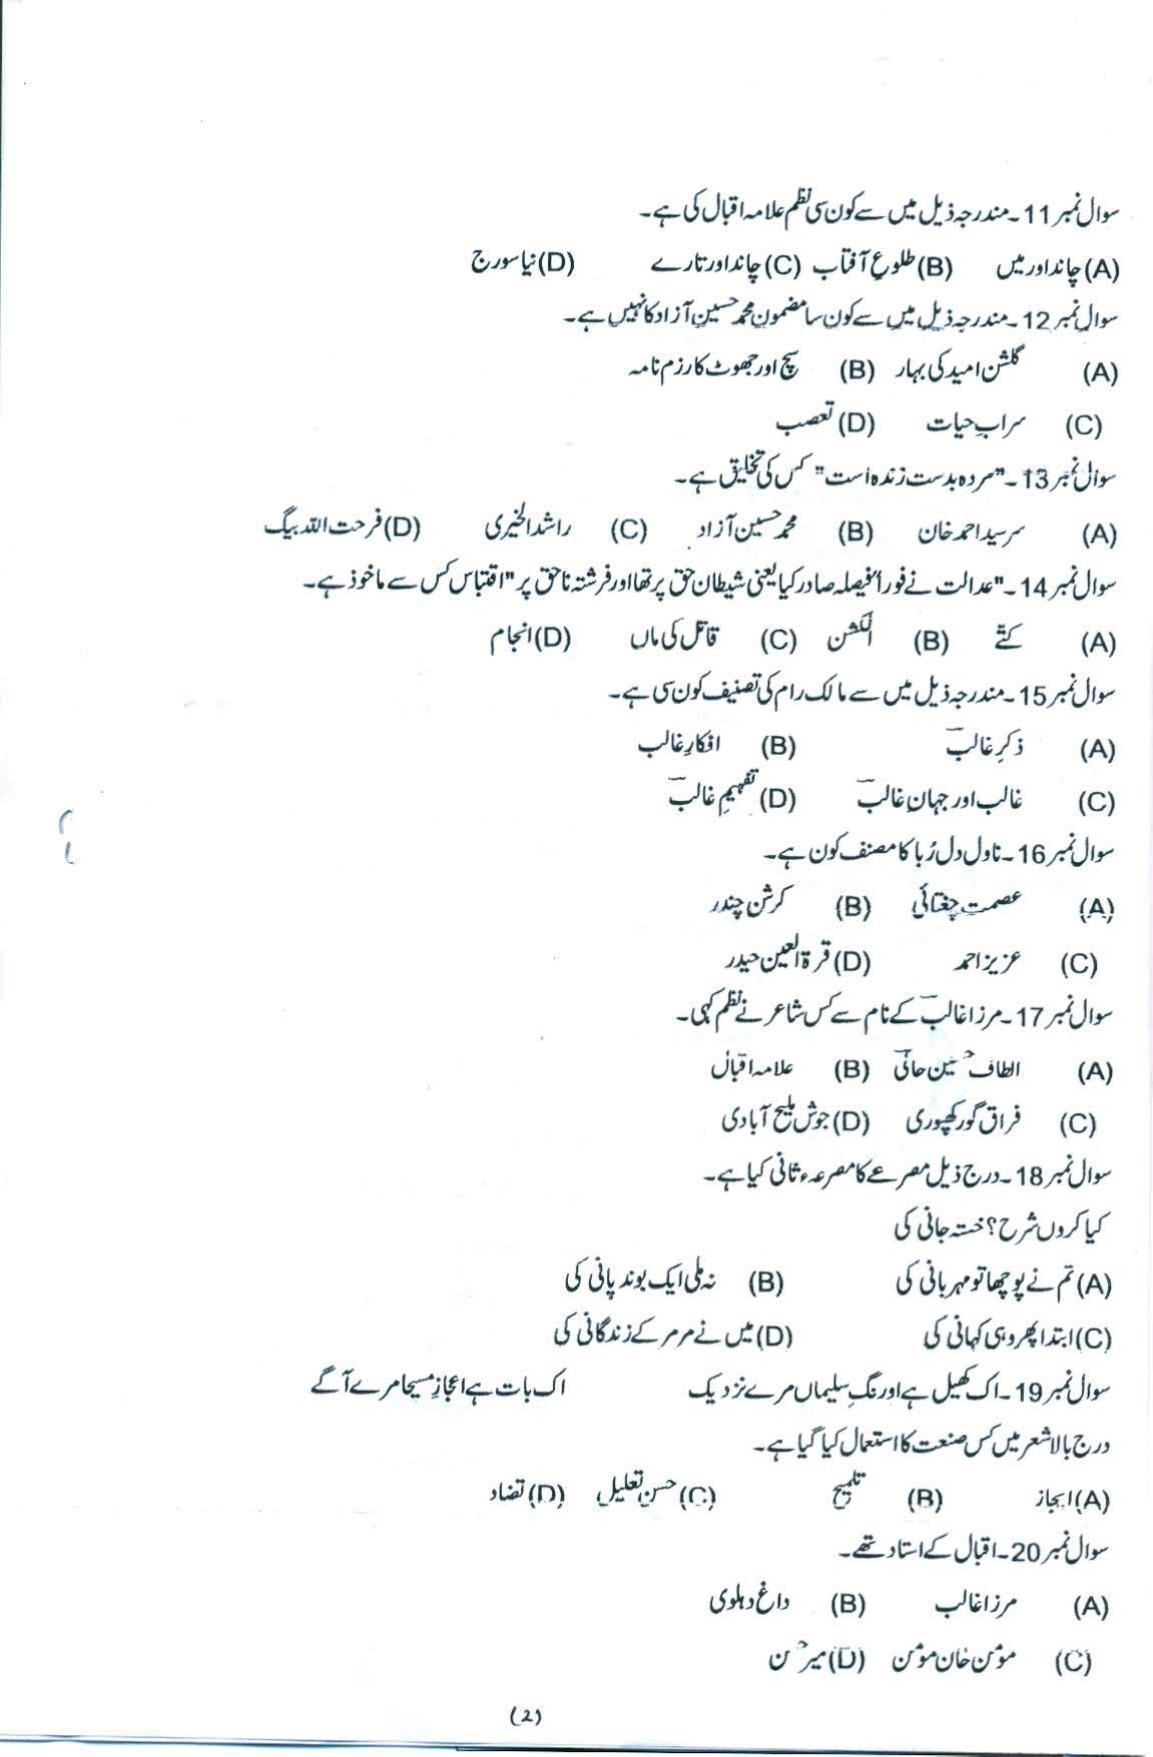 سوال نمبر 11۔ مندرجہ ذیل میں سے کون سی نظم علامہ اقبال کی ہے۔
(A) چاند اور میں (B) طلوعِ آفتاب (C) چاند اور تارے (D) نیا سورج
سوال نمبر 12۔ مندرجہ ذیل میں سے کون سا مضمون محمد حسین آزاد کا نہیں ہے۔
(A) گلشن امید کی بہار (B) سچ اور جھوٹ کا رزم نامہ
(C) سرابِ حیات (D) تعصب
سوال نمبر 13۔ "مردہ بدست زندہ است" کس کی تخلیق ہے۔
(A) سرسید احمد خان (B) محمد حسین آزاد (C) راشد الخیری (D) فرحت اللہ بیگ
سوال نمبر 14۔ "عدالت نے فوراً فیصلہ صادر کیا یعنی شیطان حق پر تھا اور فرشتہ ناحق پر" اقتباس کس سے ماخوذ ہے۔
(A) کتے (B) الکشن (C) قاتل کی ماں (D) انجام
سوال نمبر 15۔ مندرجہ ذیل میں سے مالک رام کی تصنیف کون سی ہے۔
(A) ذکرِ غالبؔ (B) افکارِ غالب
(C) غالب اور جہانِ غالبؔ (D) تفہیمِ غالبؔ
سوال نمبر 16۔ ناول دل رُبا کا مصنف کون ہے۔
(A) عصمت چغتائی (B) کرشن چندر
(C) عزیز احمد (D) قرۃ العین حیدر
سوال نمبر 17۔ مرزا غالبؔ کے نام سے کس شاعر نے نظم کہی۔
(A) الطاف حسین حالیؔ (B) علامہ اقبال
(C) فراق گورکھپوری (D) جوش ملیح آبادی
سوال نمبر 18۔ درج ذیل مصرعے کا مصرعہء ثانی کیا ہے۔
کیا کروں شرح؟ خستہ جانی کی
(A) تم نے پوچھا تو مہربانی کی (B) نہ ملی ایک بوند پانی کی
(C) ابتدا پھر وہی کہانی کی (D) میں نے مر مر کے زندگانی کی
سوال نمبر 19۔ اک کھیل ہے اورنگِ سلیماں مرے نزدیک اک بات ہے اعجازِ مسیحا مرے آگے
درج بالا شعر میں کس صنعت کا استعمال کیا گیا ہے۔
(A) ایجاز (B) تلمیح (C) حسن تعلیل (D) تضاد
سوال نمبر 20۔ اقبال کے استاد تھے۔
(A) مرزا غالب (B) داغ دہلوی
(C) مومن خان مومن (D) میر حسن
(2)